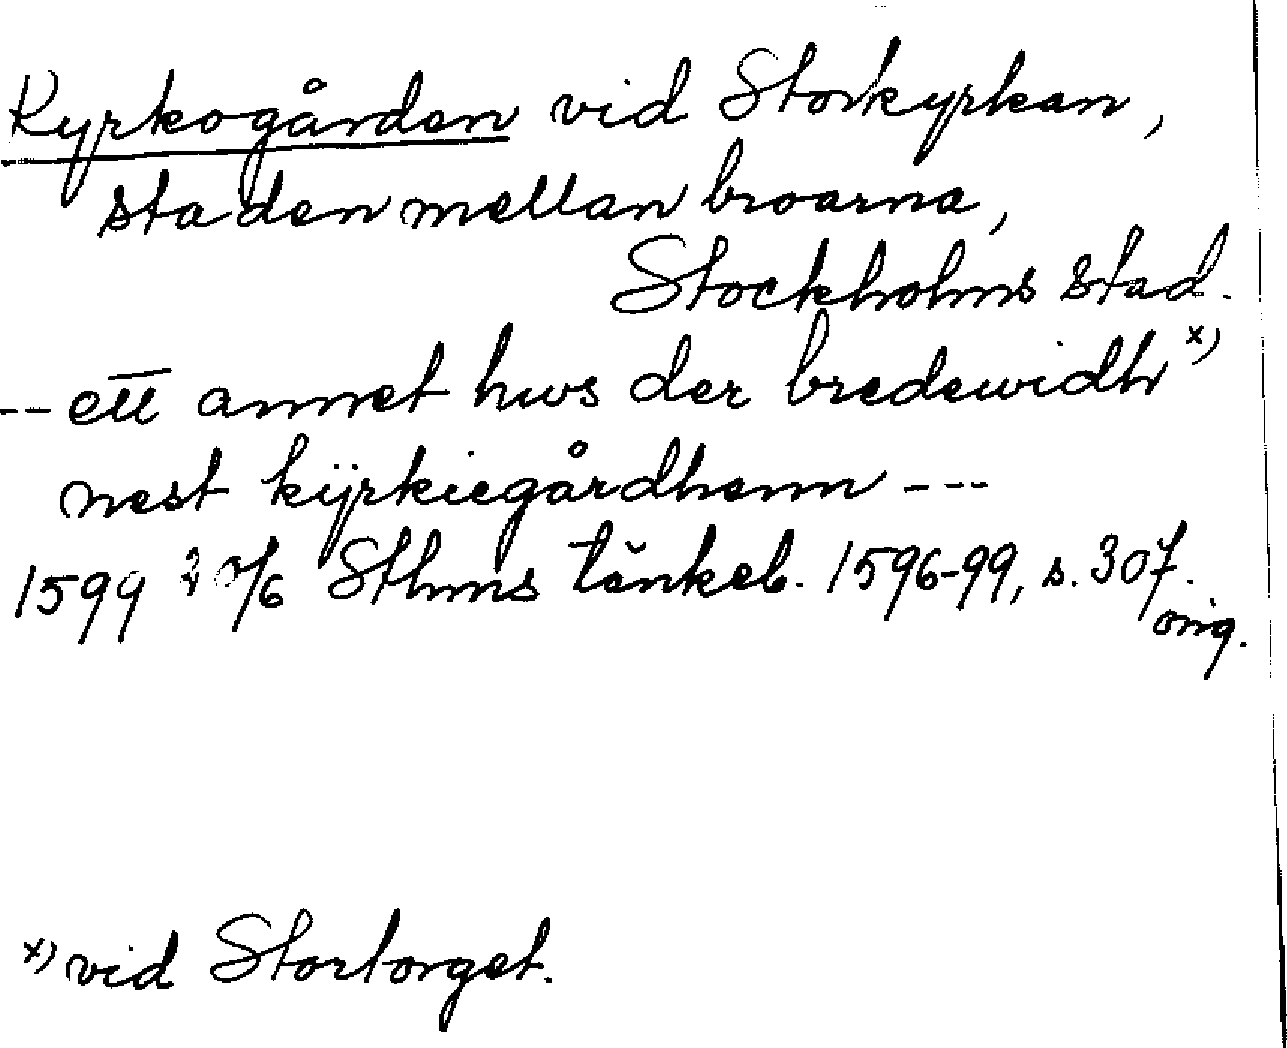 Kyrkogården vid Storkyrkan,
staden mellan broarna,
Stockholms stad.
-- ett annet hws der bredewidh x)
nest kÿrkiegårdhenn ---
1599 20/6 Sthms tänkeb. 1596-99, s. 307.
orig.
x) vid Stortorget.